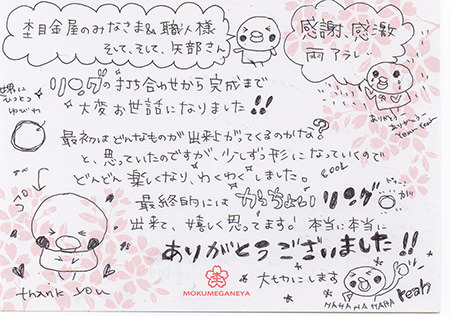 杢目金屋のみなさま&職人様
そして、そして、矢部さん
感謝、感激
雨アラレ…
世界に
ひとつ
ゆびわ
リングの打ち合わせから完成まで
大変お世話になりました!!
最初はどんなものが出来上がってくるのかな?
と、思っていたのですが、少しずつ形になっていくので
どんどん楽しくなり、わくわくしました。
COOL
最終的には かっちょいい リング が
出来て、嬉しく思ってます! 本当に本当に
ありがとうございました!!
大切にします
thank you
MOKUMEGANEYA
HAHAHAHAHA
Yeah